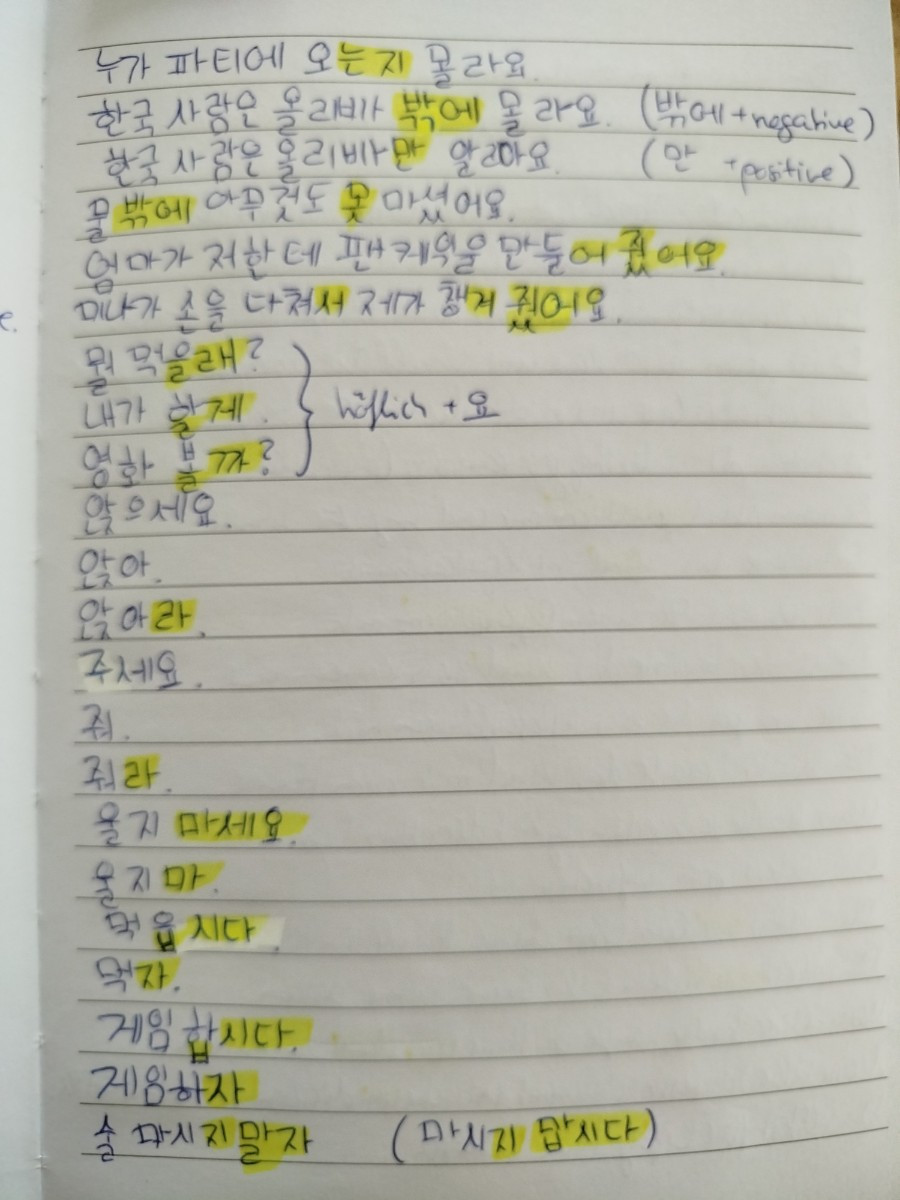 누가 파티에 오는지 몰라요.
한국 사람은 올리비아 밖에 몰라요. (밖에+negative)
한국 사람은 올리비아만 알아요. (만 +positive)
물 밖에 아무것도 못 마셨어요.
엄마가 저한테 팬케익을 만들어 줬어요.
미나가 손을 다쳐서 제가 챙겨 줬어요.
뭘 먹을래?
내가 할게.
영화 볼까?
höflich + 요
앉으세요.
앉아.
앉아라.
주세요.
줘.
줘라.
울지 마세요.
울지마.
먹읍시다.
먹자.
게임 합시다.
게임하자
술 마시지말자 (마시지 맙시다)
e.